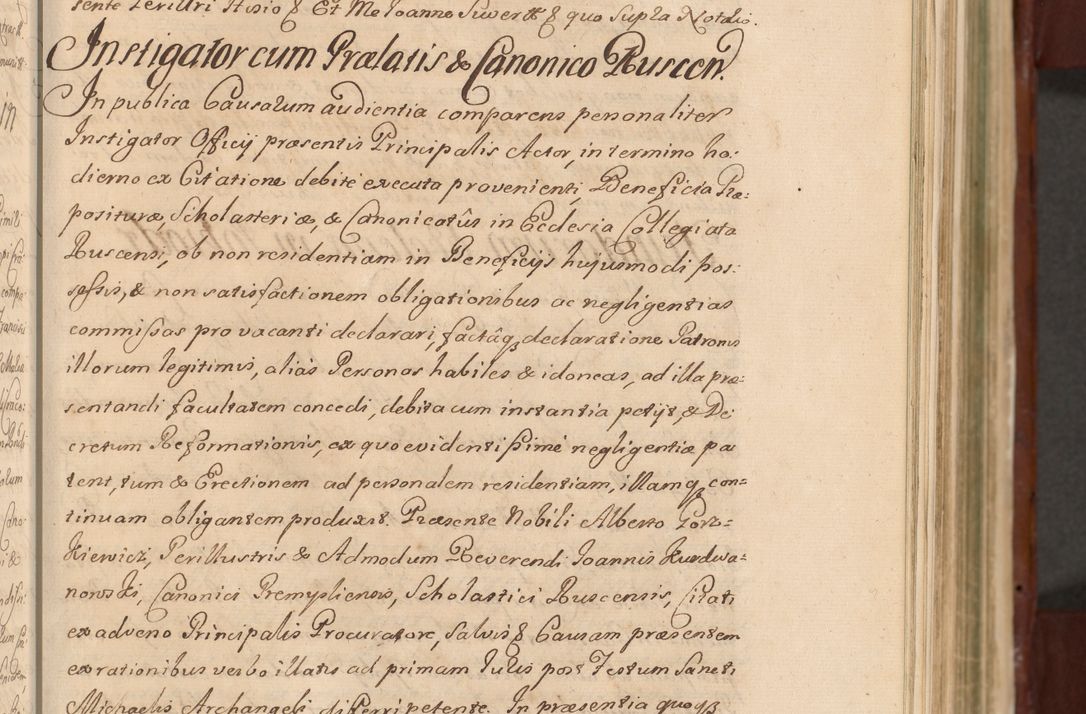 sente Perillri Hisio & Et Me Ioanne Siwertt & quo Supra Notrio.
Instigator cum Prælatis & Canonico Ruscen.
In publica Causarum audientia comparens personaliter
Instigator Officij præsentis Principalis Actor, in termino ho-
dierno ex Citatione debite executa provenienti, Beneficia Præ-
posituræ, Scholasteriæ, & Canonicatûs in Ecclesia Collegiata
Ruscensi, ob non residentiam in Beneficijs hujusmodi pos-
sessis, & non satisfactionem obligationibus ac negligentias
commissas pro vacanti declarari, factâq declaratione Patronis
illorum legitimis, aliàs Personas habiles & idoneas, ad illa præ-
sentandi facultatem concedi, debita cum instantia petijt, & De
cretum Reformationis, ex quo evidentissimè negligentiæ pa
tent, tum & Erectionem ad personalem residentiam, illamq con-
tinuam obligantem produxit. Præsente Nobili Alberto Porz-
kiewicz, Perillustris & Admodum Reverendi Ioannis Kurdwa-
nowski, Canonici Premysliensis, Scholastici Ruscensis, Citati
ex adverso Principalis Procuratore, salvis & Causam præsentem
ex rationibus verbo illatis ad primam Iuris post Festum Sancti
Michaelis Archangeli differri petente. In præsentia quoq